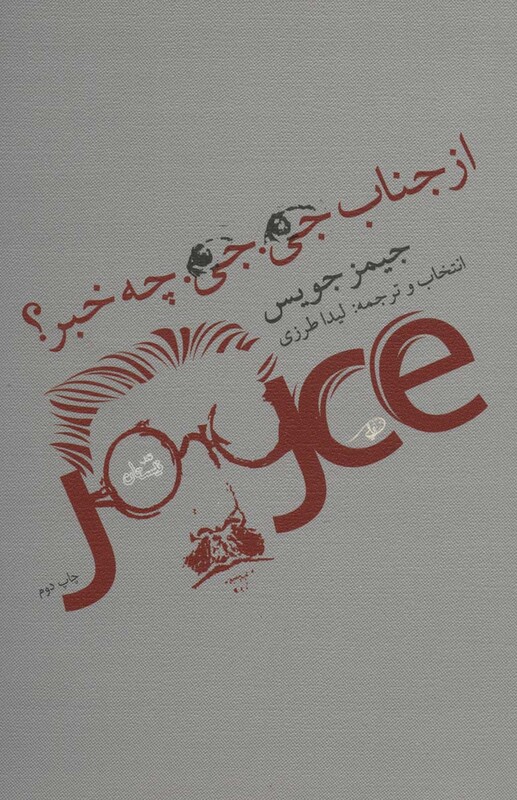 از جناب جی. جی. چه خبر؟
جیمز جویس
انتخاب و ترجمه: لیدا طرزی
Joyce
نشر نیستان
چاپ دوم